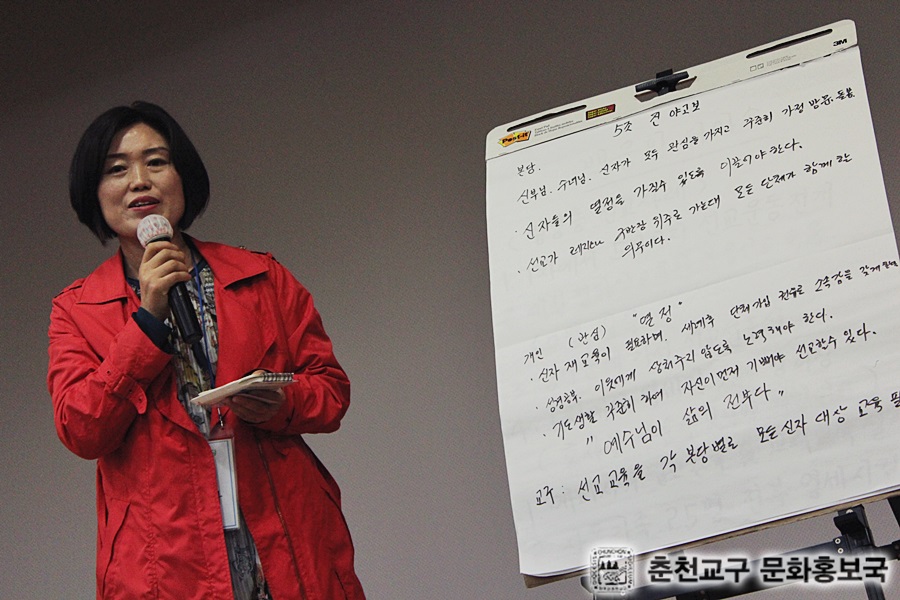 Post-it
3M
5조 진 야고보
본당.
신부님. 수녀님. 신자가 모두 관심을 가지고 꾸준히 가정 방문, 돌봄
· 신자들의 열정을 가질수 있도록 이끌어야 한다.
· 선교가 레지오나 구반장 위주로 가는데 모든 단체가 함께 한
의무이다.
개인 (관심) "열정"
· 신자 재교육이 필요하며. 세례후 단체가입 권유로 소속감을 갖게
· 성경공부. 이웃에게 상처주지 않도록 노력해야 한다.
· 기도생활 꾸준히 하여 자신이 먼저 기뻐야 선교할수 있다.
" 예수님이 삶의 전부다 "
교구 : 선교 교육을 각 본당별로 모든신자 대상 교육 필
춘천교구 문화홍보국